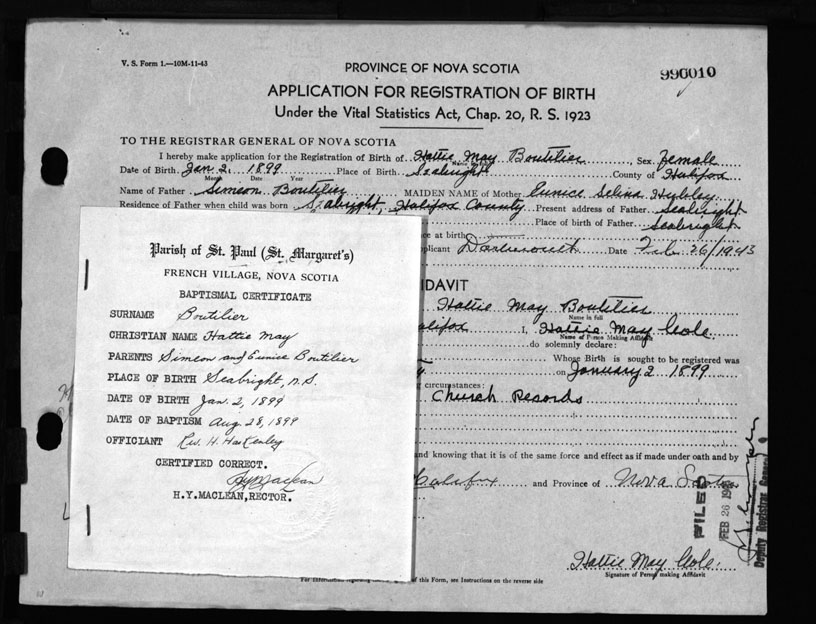 V. S. Form 1.—10M-11-43
PROVINCE OF NOVA SCOTIA
996010
APPLICATION FOR REGISTRATION OF BIRTH
Under the Vital Statistics Act, Chap. 20, R. S. 1923
TO THE REGISTRAR GENERAL OF NOVA SCOTIA
I hereby make application for the Registration of Birth of Hattie May Boutilier Sex Female
Date of Birth Jan 2, 1899 Place of Birth Seabright County of Halifax
Month Date Year
Name of Father Simeon Boutilier MAIDEN NAME of Mother Eunice Selina Hubley
Residence of Father when child was born Seabright, Halifax County Present address of Father Seabright
Place of birth of Father Seabright
ce at birth
plicant Dartmouth Date Feb 26/1943
Parish of St. Paul (St. Margaret's)
FRENCH VILLAGE, NOVA SCOTIA
BAPTISMAL CERTIFICATE
SURNAME Boutilier
CHRISTIAN NAME Hattie May
PARENTS Simeon and Eunice Boutilier
PLACE OF BIRTH Seabright, N.S.
DATE OF BIRTH Jan. 2, 1899
DATE OF BAPTISM Aug 28, 1899
OFFICIANT Rev. H.
CERTIFIED CORRECT.
HYMaclean
H.Y.MACLEAN,RECTOR.
FIDAVIT
Hattie May Boutilier
Name in full
alifax I, Hattie May Cole
Name of Person Making Affidavit
do solemnly declare:
Whose Birth is sought to be registered was
on January 2 1899
ng circumstances:
Church Records
and knowing that it is of the same force and effect as if made under oath and by
Halifax and Province of Nova Scotia
FILED
FEB 26
Deputy Registrar General
Hattie May Cole
Signature of Person making Affidavit
of this Form, see Instructions on the reverse side